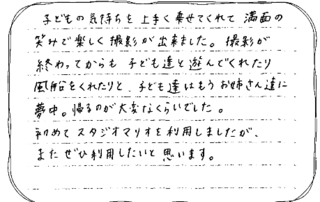 子どもの気持ちを上手く乗せてくれて 満面の
笑みで楽しく撮影が出来ました。撮影が
終わってからも 子ども達と遊んでくれたり
風船をくれたりと、子ども達はもうお姉さん達に
夢中。帰るのが大変なくらいでした。
初めてスタジオマリオを利用しましたが、
またぜひ利用したいと思います。